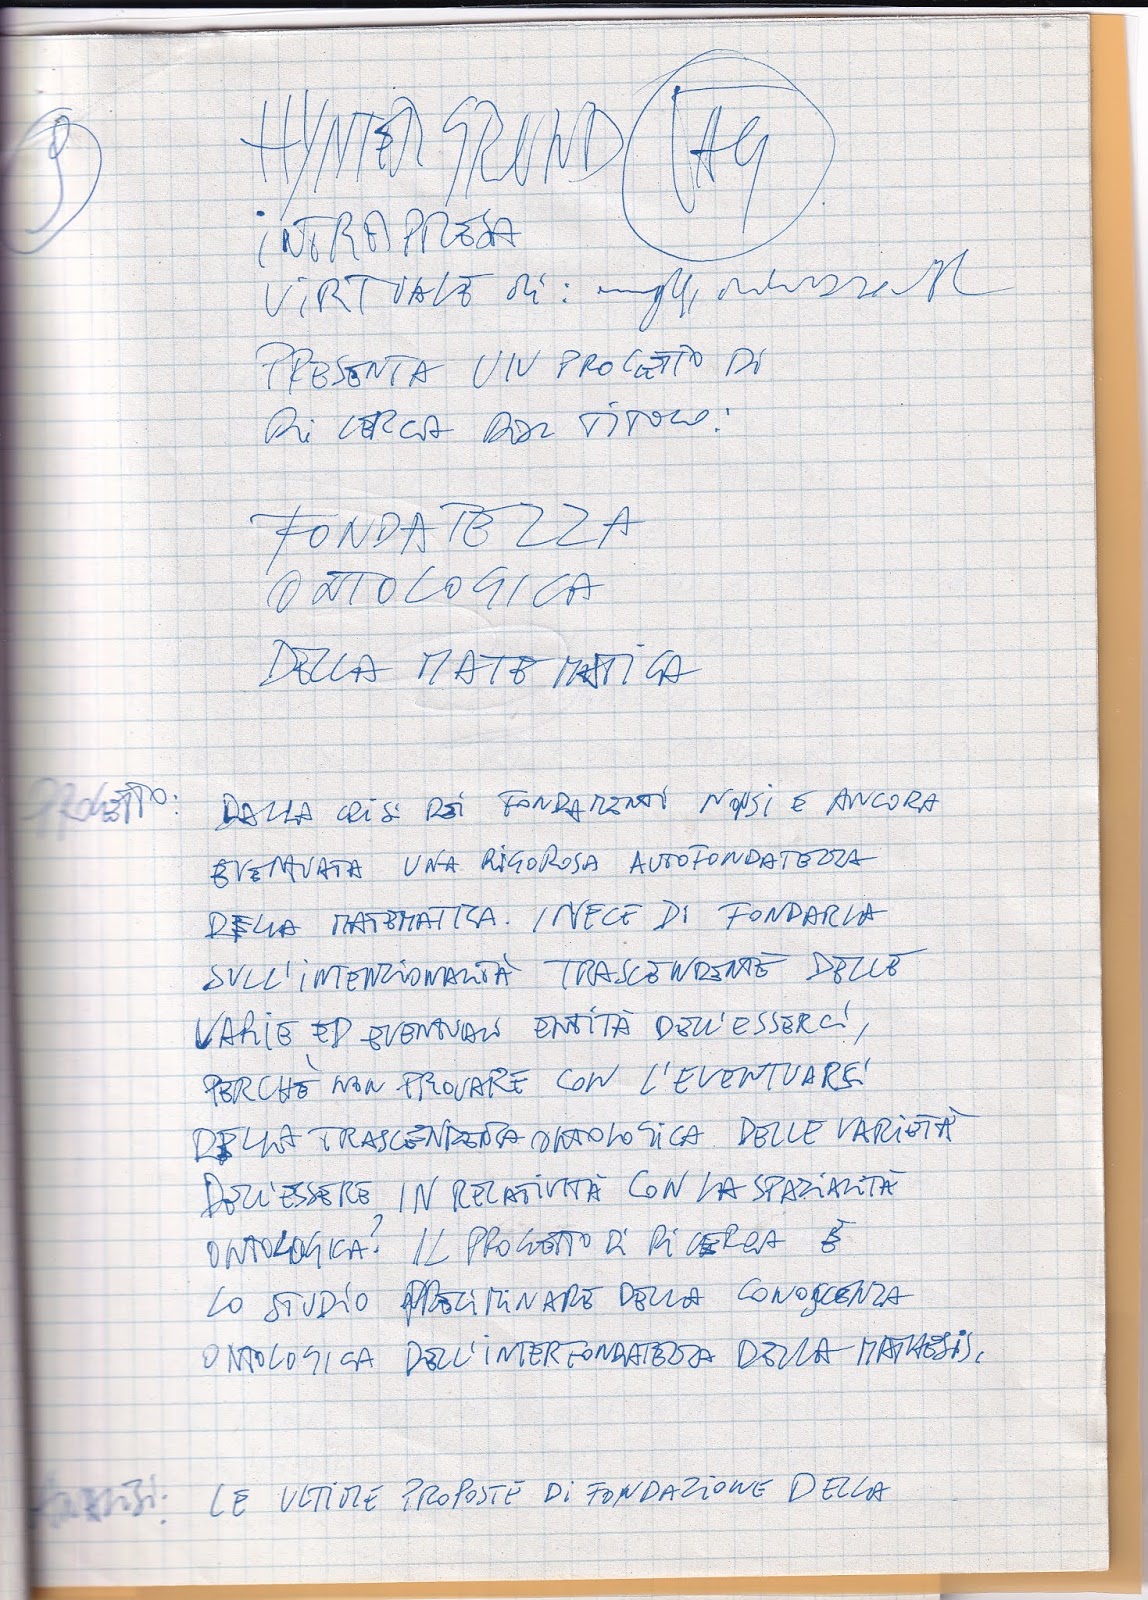 9
HYNTER GRUND VAG
INTRAPRESA
VIRTUALE di:
PRESENTA UN PROGETTO DI
RICERCA DAL TITOLO:
FONDATEZZA
ONTOLOGICA
DELLA MATEMATICA
PROGETTO: DALLA CRISI DEI FONDAMENTI NON SI È ANCORA
EVENTUATA UNA RIGOROSA AUTOFONDATEZZA
DELLA MATEMATICA. INVECE DI FONDARLA
SULL'INTENZIONALITÀ TRASCENDENTE DELLE
VARIE ED EVENTUALI ENTITÀ DELL'ESSERCI,
PERCHÈ NON PROVARE CON L'EVENTUARSI
DELLA TRASCENDENZA ONTOLOGICA DELLE VARIETÀ
DELL'ESSERE IN RELATIVITÀ CON LA SPAZIALITÀ
ONTOLOGICA? IL PROGETTO DI RICERCA È
LO STUDIO PRELIMINARE DELLA CONOSCENZA
ONTOLOGICA DELL'INTERFONDATEZZA DELLA MATHESIS.
ANALISI: LE ULTIME PROPOSTE DI FONDAZIONE DELLA